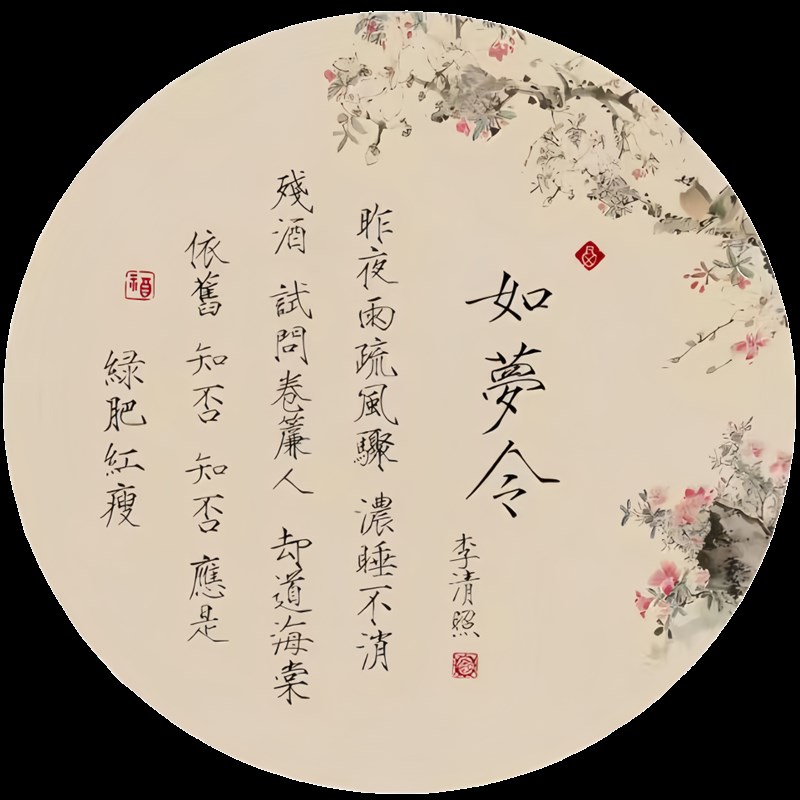 如夢令
李清照
昨夜雨疏風驟 濃睡不消
殘酒 試問卷簾人 却道海棠
依舊 知否 知否 應是
緑肥紅瘦